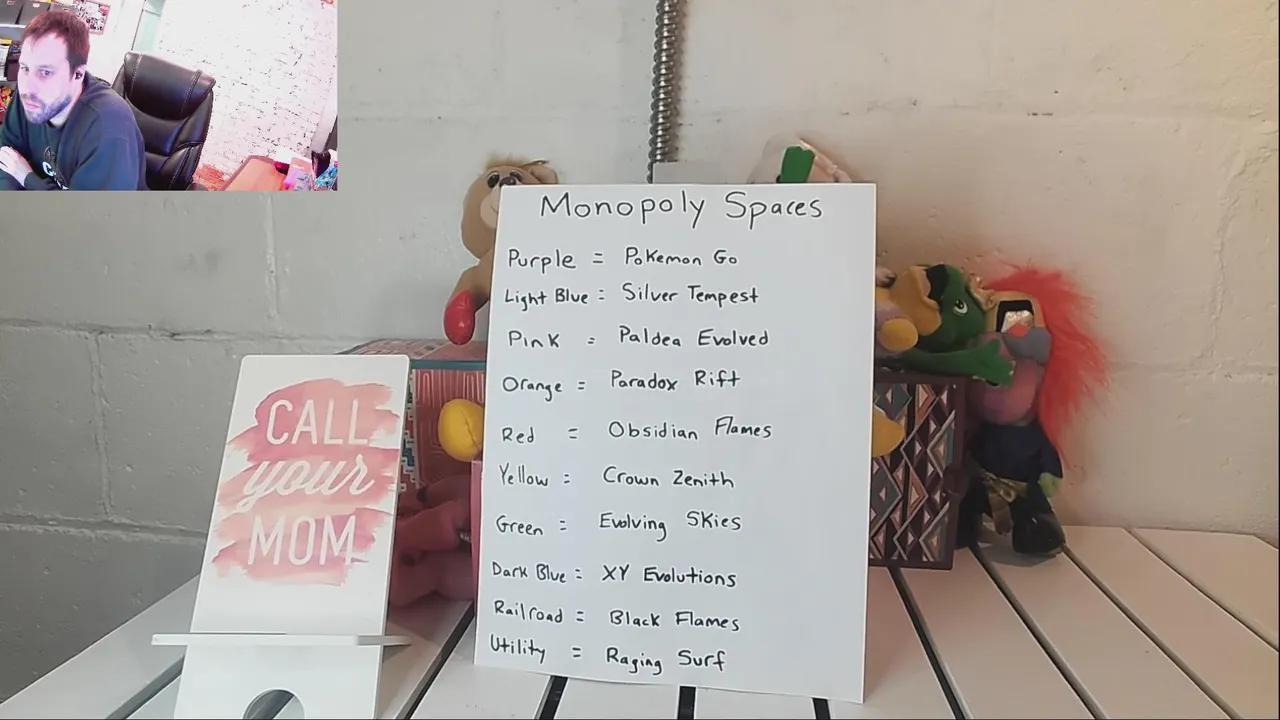 Monopoly Spaces
Purple = Pokemon Go
Light Blue = Silver Tempest
Pink = Paldea Evolved
Orange = Paradox Rift
Red = Obsidian Flames
Yellow = Crown Zenith
Green = Evolving Skies
Dark Blue = XY Evolutions
Railroad = Black Flames
Utility = Raging Surf
CALL
your
MOM